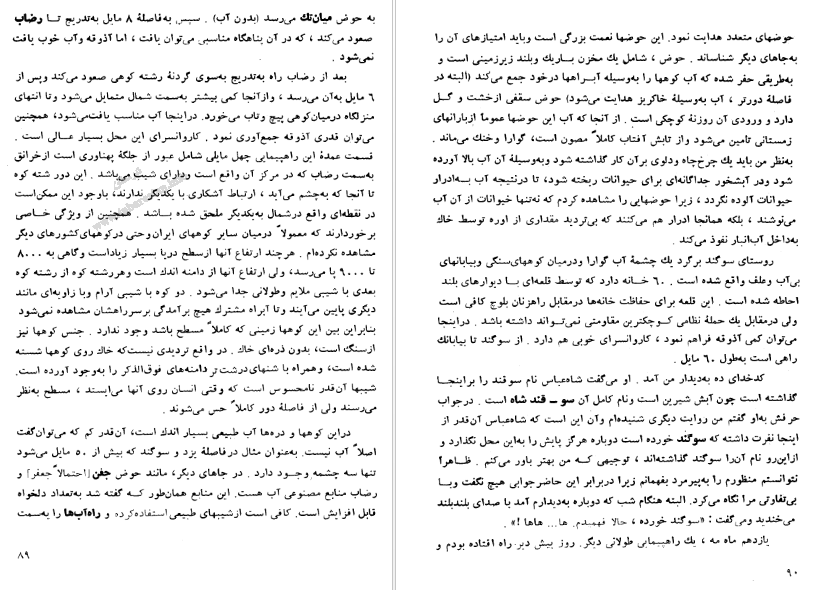 به حوض میان‌تك می‌رسد (بدون آب) . سپس به فاصلهٔ ۸ مایل به‌تدریج تـا رضاب
صعود می‌کند ، که در آن پناهگاه مناسبی می‌توان یافت ، اما آذوقه وآب خوب یافت
نمی‌شود .
بعد از رضاب راه به‌تدریج به‌سوی گردنهٔ رشته کوهی صعود می‌کند وپس از
۶ مایل به‌آن می‌رسد ، وازآنجا کمی بیشتر به‌سمت شمال متمایل می‌شود وتا انتهای
منزلگاه درمیان‌کوهی پیچ وتاب می‌خورد. دراینجا آب مناسب یافت‌می‌شود، همچنین
می‌توان قدری آذوقه جمع‌آوری نمود . کاروانسرای این محل بسیار عـالی است .
قسمت عمدهٔ این راهپیمایی چهل مایلی شامل عبور از جلگهٔ پهناوری است ازخرانق
به‌سمت رضاب که در مرکز آن واقع است ودارای شیب‌می‌باشد . این دور شته کوه
تا آنجا که به‌چشم می‌آید ، ارتباط آشکاری با یکدیگر ندارند، باوجود این ممکن‌است
در نقطه‌ای واقع درشمال به‌یکدیگر ملحق شده بـاشد . همچنین از ویژگی خـاصی
برخوردارند که معمولاً درمیان سایر کوههای ایران‌وحتی درکوههای‌کشورهای دیگر
مشاهده نکرده‌ام . هرچند ارتفاع آنها ازسطح دریا بسیار زیاداست وگاهی به ۸۰۰۰
تا ۹۰۰۰ پا می‌رسد، ولی ارتفاع آنها از دامنه اندك است وهررشته کوه از رشته کوه
بعدی با شیبی ملایم وطولانی جدا می‌شود . دو کوه با شیبی آرام وبا زاویه‌ای مانند
دیگری پایین می‌آیند وتا آبراه مشترك هیچ برآمدگی برسرراهشان مشاهده نمی‌شود
بنابراین بین این کوهها زمینی که کاملاً مسطح باشد وجود ندارد . جنس کوهها نیز
ازسنگ است، بدون ذره‌ای خاك . در واقع تردیدی نیست‌که خاك روی کوهها شسته
شده است، وهمراه با شنهای‌درشت‌تر دامنه‌های فوق‌الذکر را به‌وجود آورده است.
شیبها آن‌قدر نامحسوس است که وقتی انسان روی آنها می‌ایستد ، مسطح به‌نظر
می‌رسند ولی از فاصلهٔ دور کاملاً حس می‌شوند .
دراین کوهها و دره‌ها آب طبیعی بسیار اندك است، آن‌قدر کم که می‌توان‌گفت
اصلاً آب نیست. به‌عنوان مثال درفاصلهٔ یزد و سوگند که بیش از ۵۰ مایل می‌شود
تنها سه چشمه وجود دارد . در جاهای دیگر، مانند حوض جفن [احتمالاً جعفر] و
رضاب منابع مصنوعی آب هست. این منابع همان‌طور کـه گفته شد به‌تعداد دلخواه
قابل افزایش است. کافی است ازشیبهای طبیعی استفاده‌کرده و راه‌آب‌ها را به‌سمت
۸۹
حوضهای متعدد هدایت نمود. این حوضها نعمت بزرگی است وباید امتیازهای آن را
به‌جاهای دیگر شناساند. حوض ، شامل یك مخزن بـاریك وبلند زیرزمینی است و
به‌طریقی حفر شده که آب کوهها را به‌وسیله آبـراهها درخود جمع می‌کند (البته در
فاصلهٔ دورتر ، آب به‌وسیلهٔ خاکریز هدایت می‌شود) حوض سقفی ازخشت و گـل
دارد و ورودی آن روزنهٔ کوچکی است . از آنجا که آب این حوضها عموماً ازبارانهای
زمستانی تامین می‌شود واز تابش آفتاب کاملاً مصون است، گوارا وخنك می‌ماند .
به‌نظر من باید یك چرخ‌چاه ودلوی برآن کار گذاشته شود وبه‌وسیلهٔ آن آب بالا آورده
شود ودر آبشخور جداگانه‌ای برای حیوانات ریخته شود، تا درنتیجه آب بـه‌ادرار
حیوانات آلوده نگردد ، زیرا حوضهایی را مشاهده کردم که نه‌تنها حیوانات از آن آب
می‌نوشند ، بلکه همانجا ادرار هم می‌کنند که بی‌تردید مقداری از اوره توسط خاك
به‌داخل آب‌انبار نفوذ می‌کند .
روستای سوگند برگرد یك چشمهٔ آب گوارا ودرمیان کوههای‌سنگی وبیابانهای
بی‌آب وعلف واقع شده است . ۶۰ خـانه دارد که توسط قلعه‌ای بـا دیوارهای بلند
احاطه شده است . این قلعه برای حفاظت خانه‌ها درمقابل راهزنان بلوچ کافی است
ولی درمقابل یك حملهٔ نظامی کـوچکترین مقاومتی نمی‌تـواند داشته باشد . دراینجا
می‌توان کمی آذوقه فراهم نمود ، کاروانسرای خوبی هم دارد . از سوگند تا بیابانك
راهی است به‌طول ۶۰ مایل .
کدخدای ده به‌دیدار من آمد . او می‌گفت شاه‌عباس نام سوقند را براینجـا
گذاشته است چون آبش شیرین است ونام کامل آن سو ـ قند شاه است . درجواب
حرفش به‌او گفتم من روایت دیگری شنیده‌ام وآن این است که شاه‌عباس آن‌قدر از
اینجا نفرت داشته که سوگند خورده است دوباره هرگز پایش را به‌این محل نگذارد و
ازاین‌رو نام آن‌را سوگند گذاشته‌اند ، توجیهی کـه من بهتر باور می‌کنم . ظـاهراً
نتوانستم منظورم را به‌پیرمرد بفهمانم زیرا دربرابر این حاضرجوابی هیچ نگفت وبـا
بی‌تفاوتی مرا نگاه می‌کرد. البته هنگام شب که دوباره به‌دیدارم آمد با صدای بلندبلند
می‌خندید ومی‌گفت : «سوگند خورده ، حالا فهمیدم. ها... هاها !» .
یازدهم ماه مه ، یك راهپیمایی طولانی دیگر. روز پیش دیر راه افتاده بودم و
۹۰